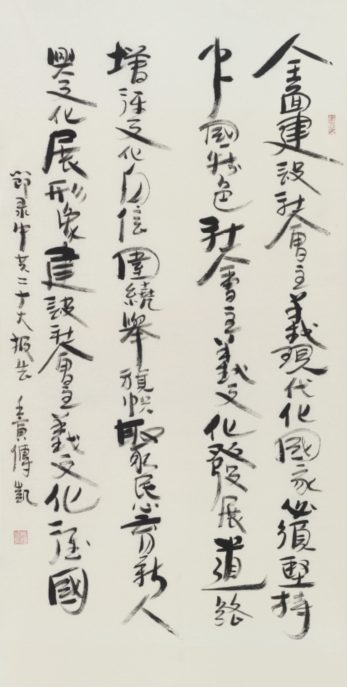 全面建設社會主義現代化國家必須堅持
中國特色社會主義文化發展道路
增强文化自信圍繞舉旗幟聚民心育新人
興文化展形象建設社會主義文化强國
節录中共二十大报告 壬寅傅凱